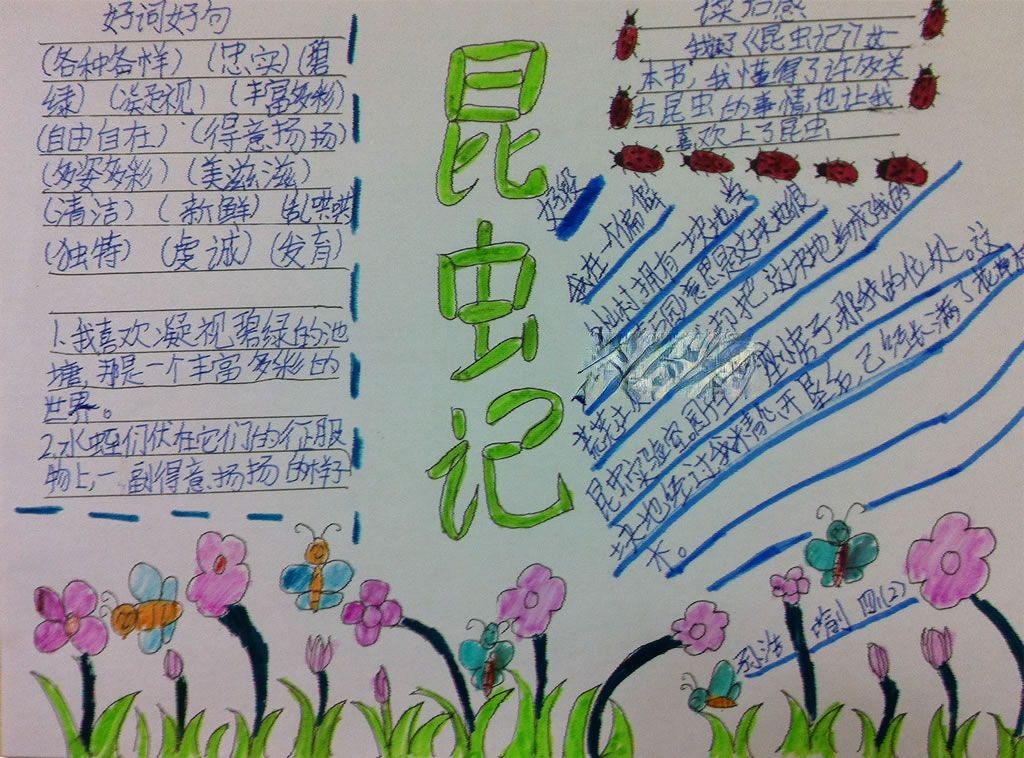 好词好句
(各种各样) (忠实) (碧
绿) (凝视) (丰富多彩)
(自由自在) (得意扬扬)
(多姿多彩) (美滋滋)
(清洁) (新鲜) (乱哄哄)
(独特) (虔诚) (发育)
1.我喜欢凝视碧绿的池
塘,那是一个丰富多彩的
世界。
2.水蛭们伏在它们的征服
物上,一副得意扬扬的样子
昆虫记
读后感
我读了《昆虫记》这一
本书,我懂得了许多关
与昆虫的事情,也让我
喜欢上了昆虫
好段
我在一个偏僻
小山村拥有一块地
意思是这块地很
荒芜 把这块地当成了我的
昆虫实验室,围住 那我的住处。这
块地经过我精心开垦后,已经长满了
木。
四(2)